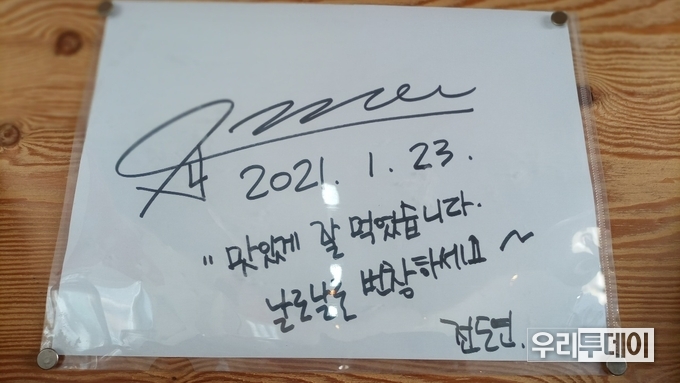 2021. 1. 23.
" 맛있게 잘 먹었습니다.
날로날로 번창하세요 ~
전도연.
우리투데이